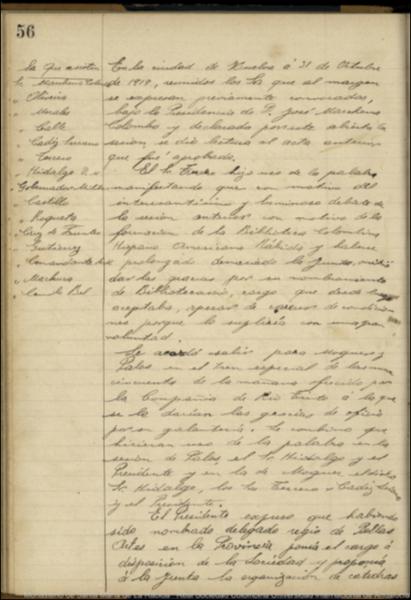 56
Sres. que asisten
Sr. Marchena Colombo
" Oliveira
" Morales
" Calle
" Cádiz Serrano
" Terrero
" Hidalgo
" Gobernador Militar
" Castillo
"
" Cruz de Fuentes
" Gutierrez
" Comandante
" Machuca
"
En la ciudad de Huelva á 31 de Octubre
de 1919, reunidos los Sres que al margen
se expresan previamente convocados,
bajo la Presidencia de D. José Marchena
Colombo y declarada por este abierta la
sesion se dió lectura al acta anterior
que fué aprobada.
El Sr. Terrero hizo uso de la palabra
manifestando que con motivo del
interesantísimo y luminoso debate de
la sesión anterior con motivo de la
formacion de la Biblioteca Colombina
Hispano Americana Rábida y haberse
prolongado demasiado la Junta,
dar las gracias por su nombramiento
de Bibliotecario, cargo que desde luego
aceptaba, apesar de carecer de condicio
nes porque lo supliría con un gran
voluntad.
Se acordó salir para Moguer y
Palos en el tren especial de las nueve
cincuenta de la mañana ofrecido por
la Compañía de Rio Tinto á la que
se la darían las gracias de oficio
por su galantería. Se convino que
hicieran uso de la palabra en la
sesión de Palos el Sr. Hidalgo y el
Presidente y en la de Moguer el
Sr. Hidalgo, los Sres Terrero y Cadiz Serrano
y el Presidente.
El Presidente expuso que habiendo
sido nombrado delegado regio de Bellas
Artes en la Provincia ponía el cargo á
disposición de la Sociedad y proponía
á la Junta la organización de catedras